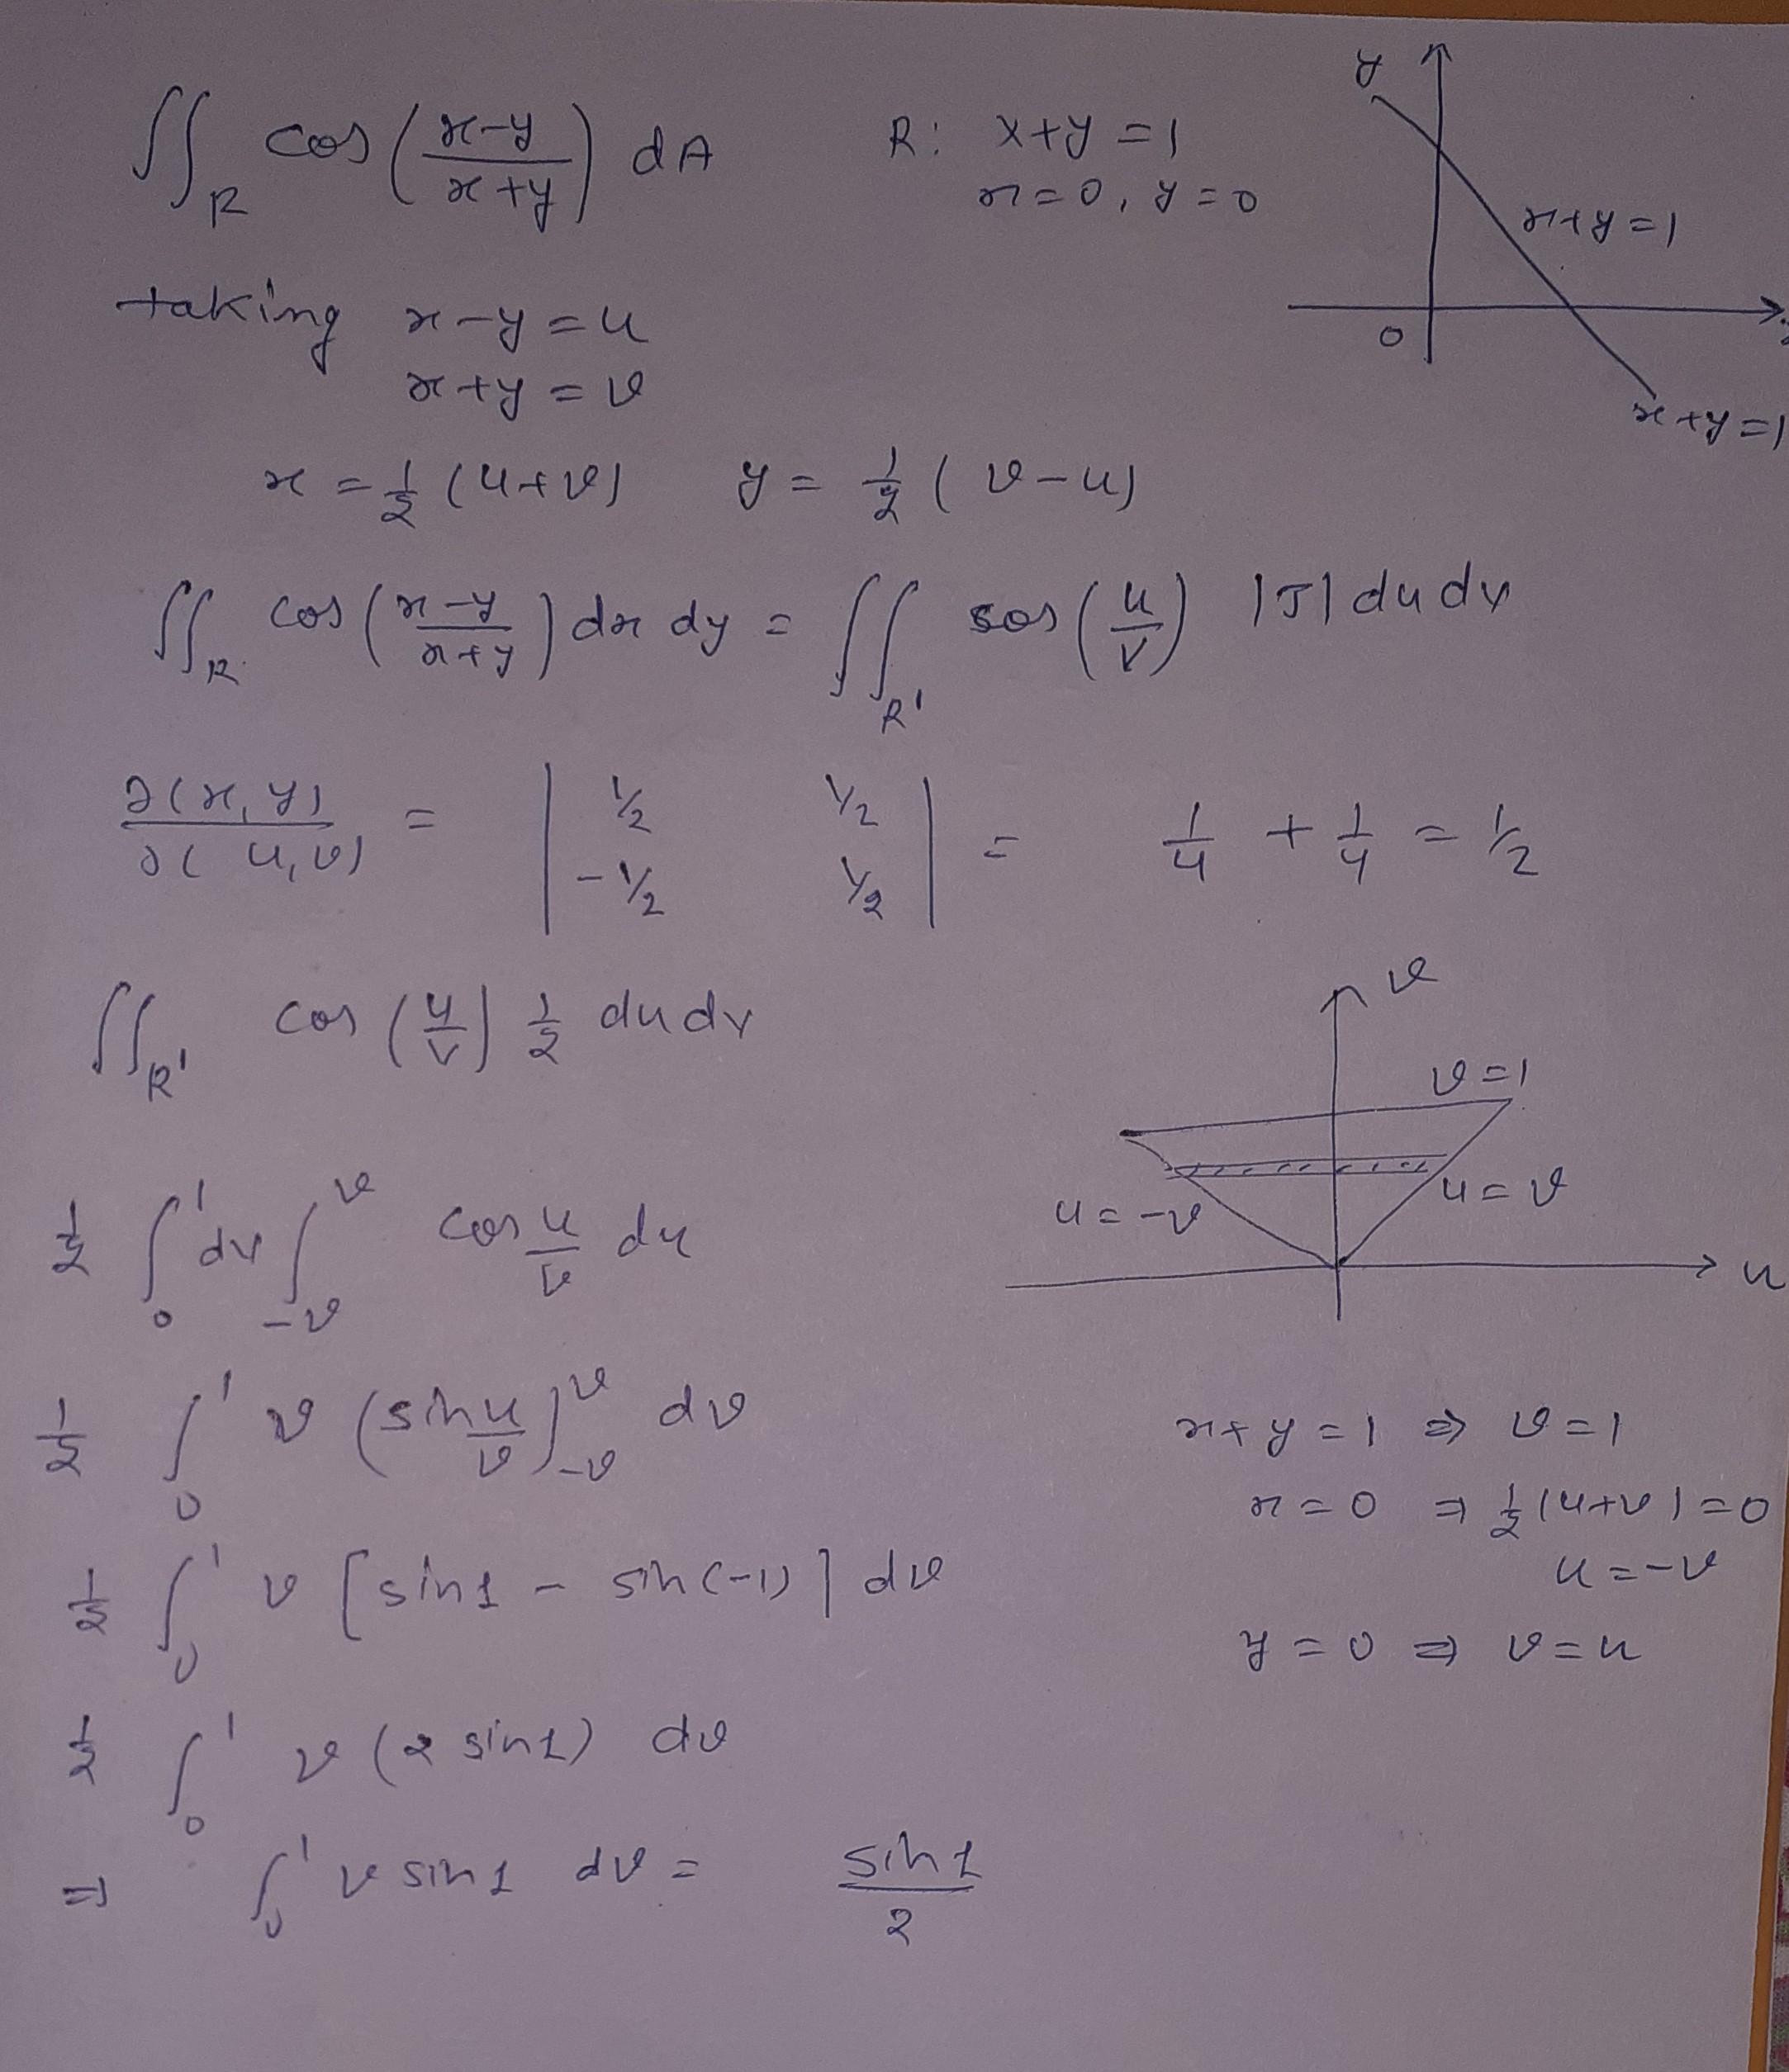 ∬_R cos((x-y)/(x+y)) dA    R: x+y=1
x=0, y=0
y
x+y=1
0
x+y=1
taking x-y=u
x+y=v
x = 1/2 (u+v)    y = 1/2 (v-u)
∬_R cos((x-y)/(x+y)) dx dy = ∬_R' cos(u/v) |J| du dv
∂(x,y)/∂(u,v) = | 1/2  1/2 |
| -1/2  1/2 | = 1/4 + 1/4 = 1/2
∬_R' cos(u/v) 1/2 du dv
v
v=1
u=-v
u=v
u
1/2 ∫_0^1 dv ∫_-v^v cos u/v du
1/2 ∫_0^1 v (sin u/v)_-v^v dv
x+y=1 ⇒ v=1
x=0 ⇒ 1/2(u+v)=0
u=-v
y=0 ⇒ v=u
1/2 ∫_0^1 v [sin1 - sin(-1)] dv
1/2 ∫_0^1 v (2 sin1) dv
⇒ ∫_0^1 v sin1 dv = sin1/2